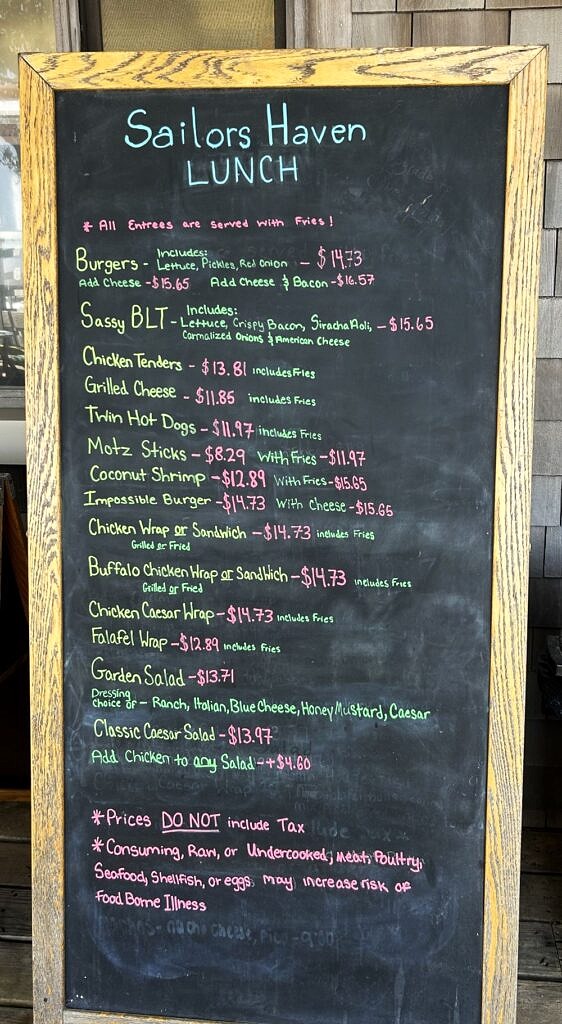 Sailors Haven
LUNCH
* All Entrees are served with Fries!
Burgers - Includes: Lettuce, Pickles, Red Onion - $14.73
Add Cheese - $15.65 Add Cheese & Bacon - $16.57
Sassy BLT - Includes: Lettuce, Crispy Bacon, SirachaAoli, - $15.65
Carmalized Onions & American Cheese
Chicken Tenders - $13.81 includes Fries
Grilled Cheese - $11.85 includes Fries
Twin Hot Dogs - $11.97 includes Fries
Motz Sticks - $8.29 With Fries - $11.97
Coconut Shrimp - $12.89 With Fries - $15.65
Impossible Burger - $14.73 With Cheese - $15.65
Chicken Wrap or Sandwich - $14.73 includes Fries
Grilled or Fried
Buffalo Chicken Wrap or Sandwich - $14.73 includes Fries
Grilled or Fried
Chicken Caesar Wrap - $14.73 includes Fries
Falafel Wrap - $12.89 includes Fries
Garden Salad - $13.71
Dressing choice of - Ranch, Italian, Blue Cheese, Honey Mustard, Caesar
Classic Caesar Salad - $13.97
Add Chicken to any Salad - +$4.60
*Prices DO NOT include Tax
*Consuming, Raw, or Undercooked, meat, Poultry,
Seafood, Shellfish, or eggs may increase risk of
Food Borne Illness